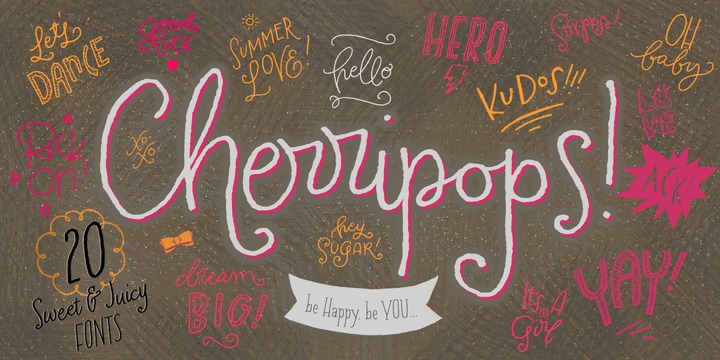 Let's
DANCE
Good
luck
SUMMER
LOVE!
hello
HERO
Surprise!
OH
baby
KUDOS!!!
LO
VE
Rock
on!
XO
XO
Cherripops!
ACK!
20
Sweet & Juicy
FONTS
hey
SUGAR!
dream
BIG!
be Happy. be YOU...
It's A
Girl
YAY!